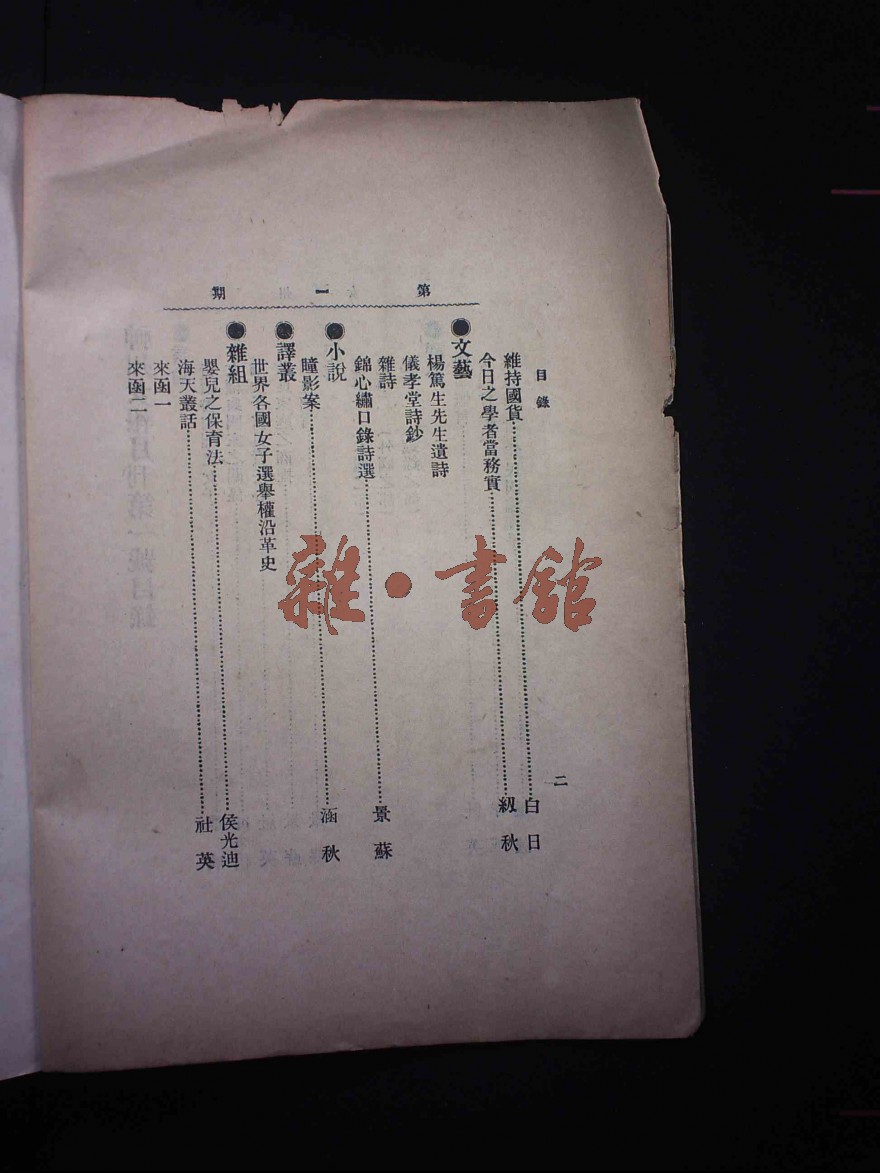 第一期
目錄
二
維持國貨……白日
今日之學者當務實……級秋
●文藝
楊篤生先生遺詩
儀孝堂詩鈔
雜詩
錦心繡口錄詩選……景蘇
●小說
瞳影案……涵秋
●譯叢
世界各國女子選舉權沿革史
●雜組
嬰兒之保育法……侯光迪
海天叢話……社英
來函一
來函二
雜·書館